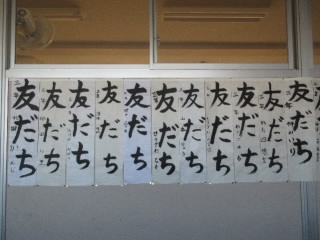 友だち
友だち
友だち
友だち
友だち
友だち
友だち
友だち
友だち
友だち
友だち